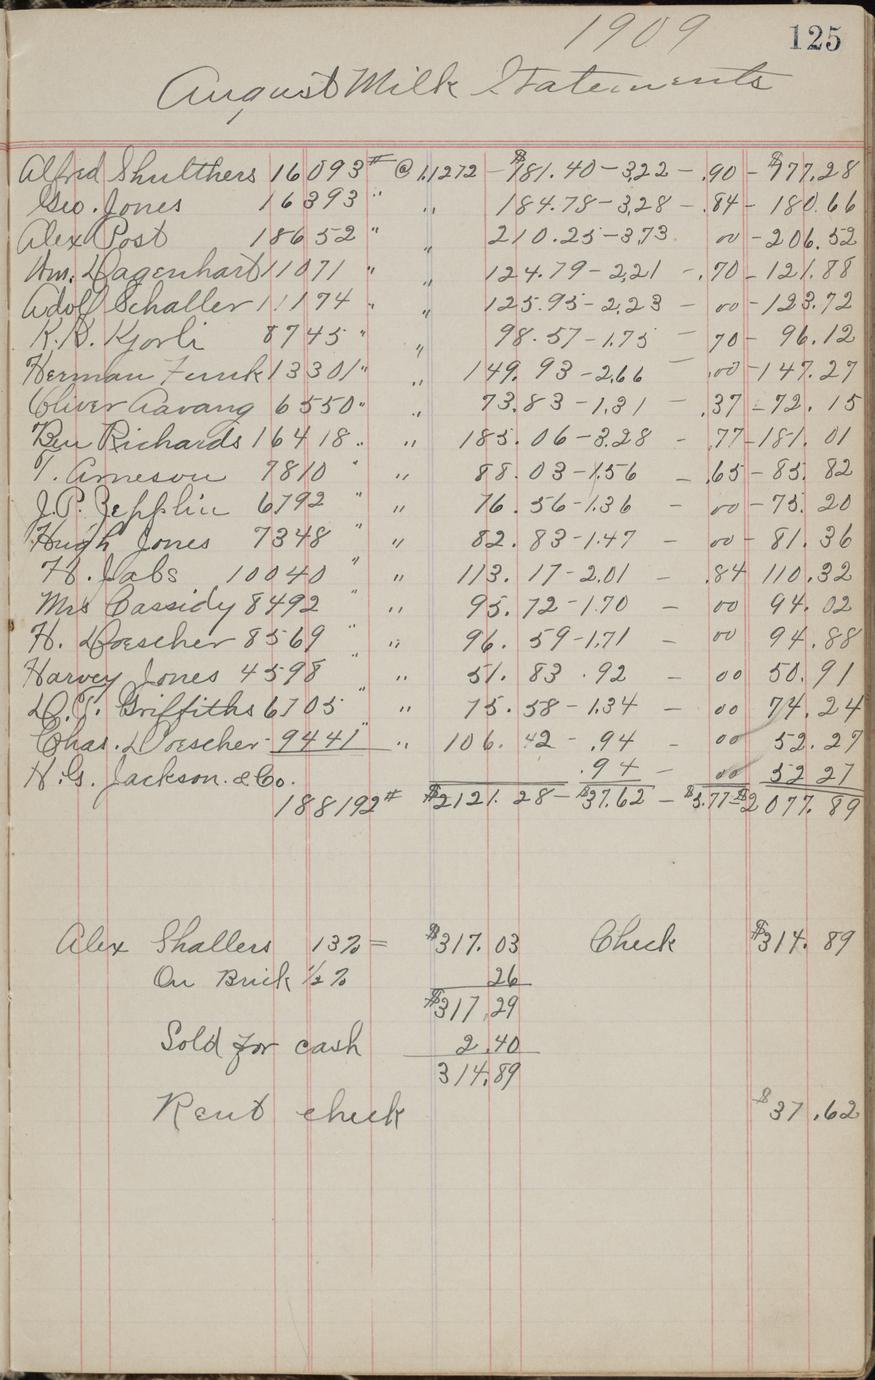 1909 125
August Milk Statements
Alfred Shulthers 16093# @ 1.1272 - $181.40 - 3.22 - .90 - $177.28
Geo. Jones 16393 " " 184.78 - 3.28 - .84 - 180.66
Alex Post 18652 " " 210.25 - 3.73 00 - 206.52
Wm. Dagenhart 11071 " " 124.79 - 2.21 - .70 - 121.88
Adolf Schaller 11174 " " 125.95 - 2.23 - 00 - 123.72
K.K. Kjorli 8745 " " 98.57 - 1.75 - 70 - 96.12
Herman Funk 13301 " " 149.93 - 2.66 - .00 - 147.27
Oliver Aavang 6550 " " 73.83 - 1.31 - .37 - 72.15
Ben Richards 16418 " " 185.06 - 3.28 - .77 - 181.01
T. Arneson 7810 " " 88.03 - 1.56 - .65 - 85.82
J.P. Zepplin 6792 " " 76.56 - 1.36 - 00 - 75.20
Hugh Jones 7348 " " 82.83 - 1.47 - 00 - 81.36
H. Jabs 10040 " " 113.17 - 2.01 - .84 110.32
Mrs Cassidy 8492 " " 95.72 - 1.70 - 00 94.02
H. Doescher 8569 " " 96.59 - 1.71 - 00 94.88
Harvey Jones 4598 " " 51.83 .92 - 00 50.91
D.T. Griffiths 6705 " " 75.58 - 1.34 - 00 74.24
Chas. Doescher - 9441 " " 106.42 - .94 - 00 52.27
H.G. Jackson. & Co. .94 - 00 52 27
188192# $2121.28 - $37.62 - $5.77 - $2077.89
Alex Shallers 13% = $317.03 Check $314.89
On Brick ½% 26
$317.29
Sold for cash 2.40
314.89
Rent check $37.62